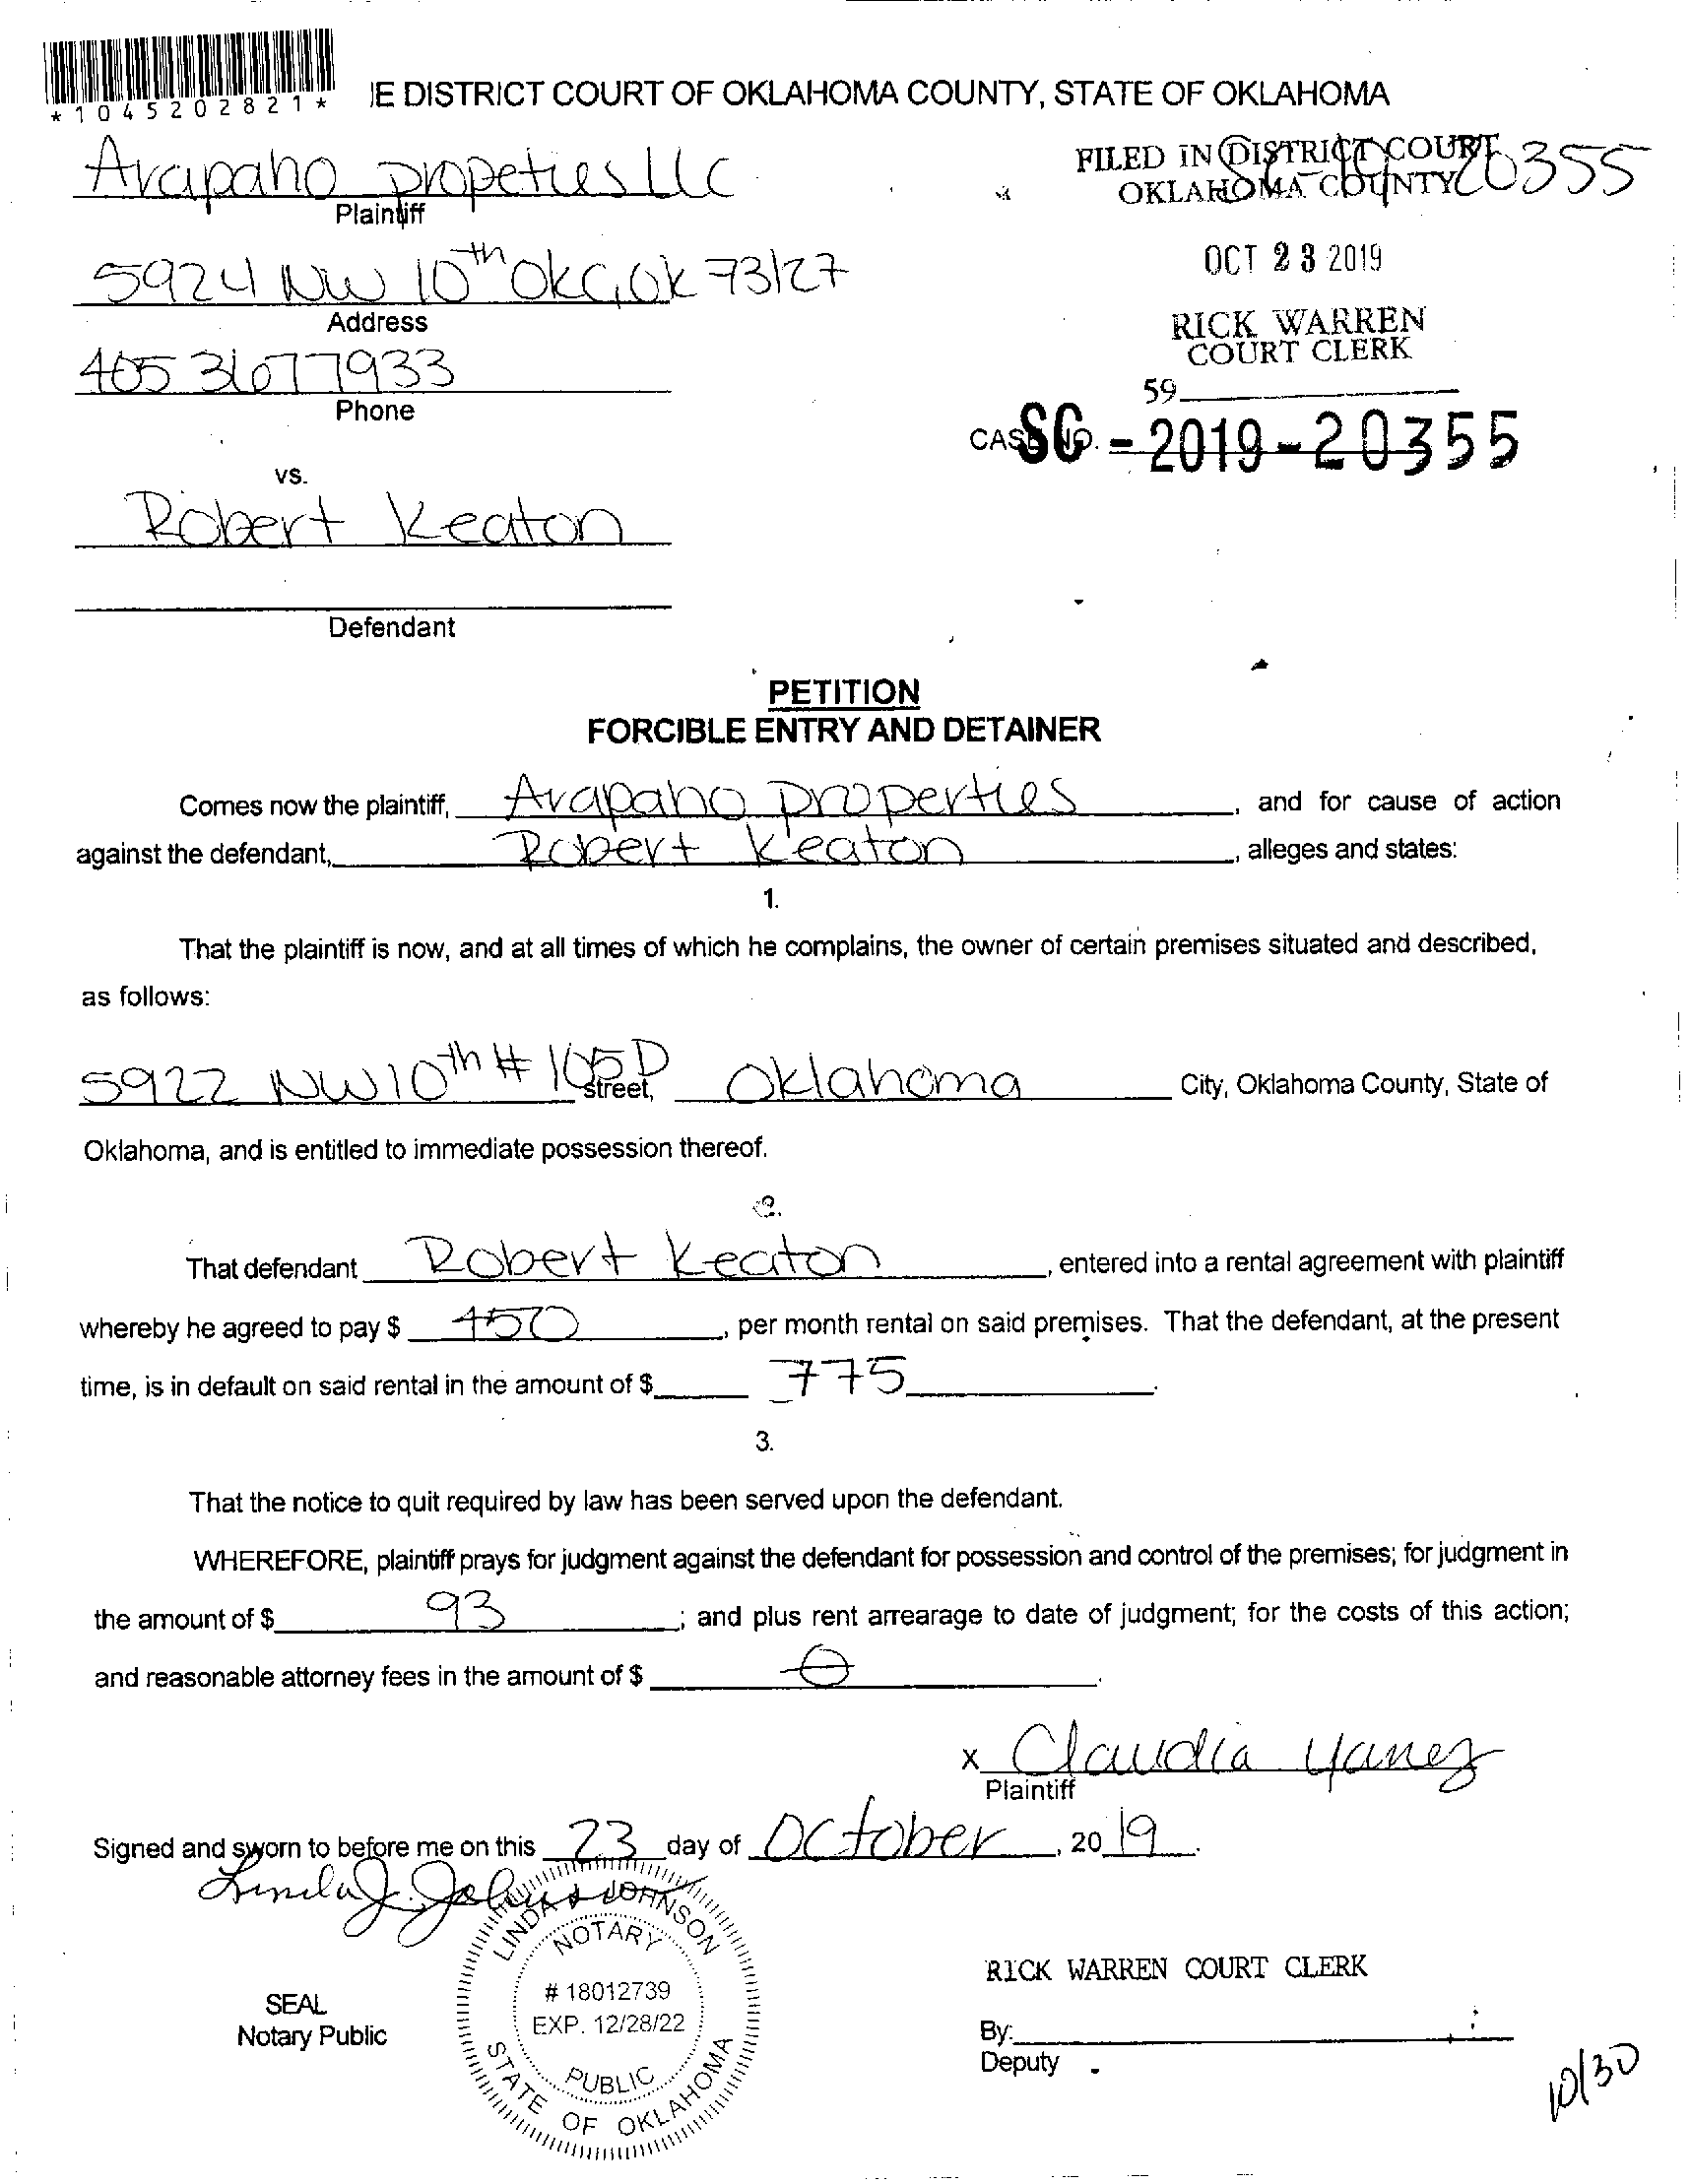 *1045202821*
IE DISTRICT COURT OF OKLAHOMA COUNTY, STATE OF OKLAHOMA
Arapaho propeties LLC
Plaintiff
FILED IN DISTRICT COURT
OKLAHOMA COUNTY
SC 19 20355
5924 NW 10th OKC, OK 73127
Address
OCT 23 2019
RICK WARREN
COURT CLERK
405 3677933
Phone
59
CASE NO. SC - 2019 - 20355
vs.
Robert Keaton
Defendant
PETITION
FORCIBLE ENTRY AND DETAINER
Comes now the plaintiff, Arapaho properties, and for cause of action
against the defendant, Robert Keaton, alleges and states:
1.
That the plaintiff is now, and at all times of which he complains, the owner of certain premises situated and described,
as follows:
5922 NW 10th # 105D street, Oklahoma City, Oklahoma County, State of
Oklahoma, and is entitled to immediate possession thereof.
2.
That defendant Robert Keaton, entered into a rental agreement with plaintiff
whereby he agreed to pay $ 450, per month rental on said premises. That the defendant, at the present
time, is in default on said rental in the amount of $ 775.
3.
That the notice to quit required by law has been served upon the defendant.
WHEREFORE, plaintiff prays for judgment against the defendant for possession and control of the premises; for judgment in
the amount of $ 93; and plus rent arrearage to date of judgment; for the costs of this action;
and reasonable attorney fees in the amount of $ 0.
X Claudia Yanez
Plaintiff
Signed and sworn to before me on this 23 day of October, 2019.
Linda J. Johnson
LINDA J JOHNSON
NOTARY
# 18012739
EXP. 12/28/22
PUBLIC
STATE OF OKLAHOMA
SEAL
Notary Public
RICK WARREN COURT CLERK
By:
Deputy
10/30